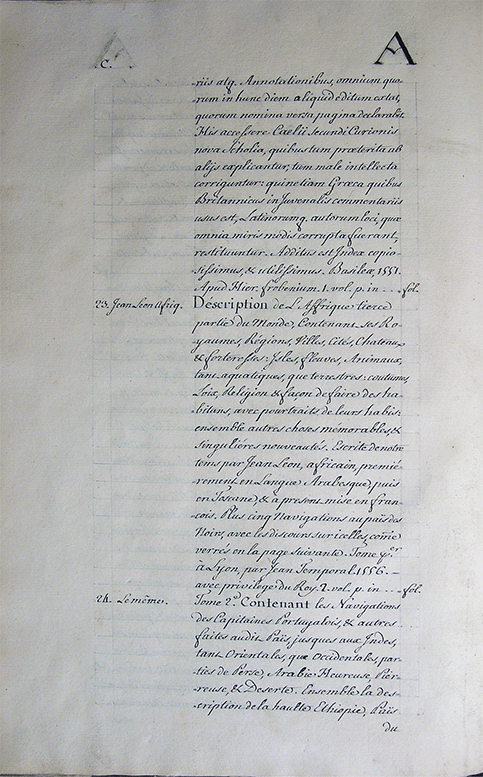 C.
A
riis atq. Annotationibus, omnium quo-
rum in hunc diem aliquid editum extat,
quorum nomina versa pagina declarabit.
His accessere Cælii secundi Curionis
nova Scholia, quibus tum præterita ab
alijs explicantur, tum male intellecta
corriguntur: quinetiam Græca quibus
Britannicus in Juvenalis commentariis
usus est, Latinorumq. autorum loci, quæ
omnia miris modis corrupta fuerant,
restituuntur. Additus est Index copio-
sissimus, & utilissimus. Basileæ, 1551.
Apud Hier. frobenium. 1. vol. p. in - - - fol.
23. Jean Leon Afriq. Description de L'Affrique tierce
partie du Monde, Contenant ses Ro-
yaumes, Régions, Villes, Cités, Chateaux
& forteresses: Isles, fleuves, Animaux,
tant aquatiques, que terrestres: coutumes,
Loix, Religion & façon de faire des ha-
bitans, avec pourtraits de leurs habis:
ensemble autres choses mémorables, &
singuliéres nouveautés. Escrite de notre
tems par Jean Léon, africain, premié-
rement en Langue Arabesque, puis
en Toscane, & a present mise en fran-
cois. Plus cinq Navigations au païs des
Noirs, avec les discours sur icelles, come
verrés en la page suivante. Tome pr.
a Lyon, par Jean Temporal. 1556. -
avec privilége du Roy. 2. vol. p. in - - - fol.
24. Le même. Tome 2d. Contenant les Navigations
des Capitaines Portugalois, & autres
faites audit Païs, jusques aux Indes,
tant Orientales, que Occidentales, par-
ties de Perse, Arabie Heureuse, Pier-
reuse, & Deserte. Ensemble la des-
cription de la haulte Ethiopie, Païs
du